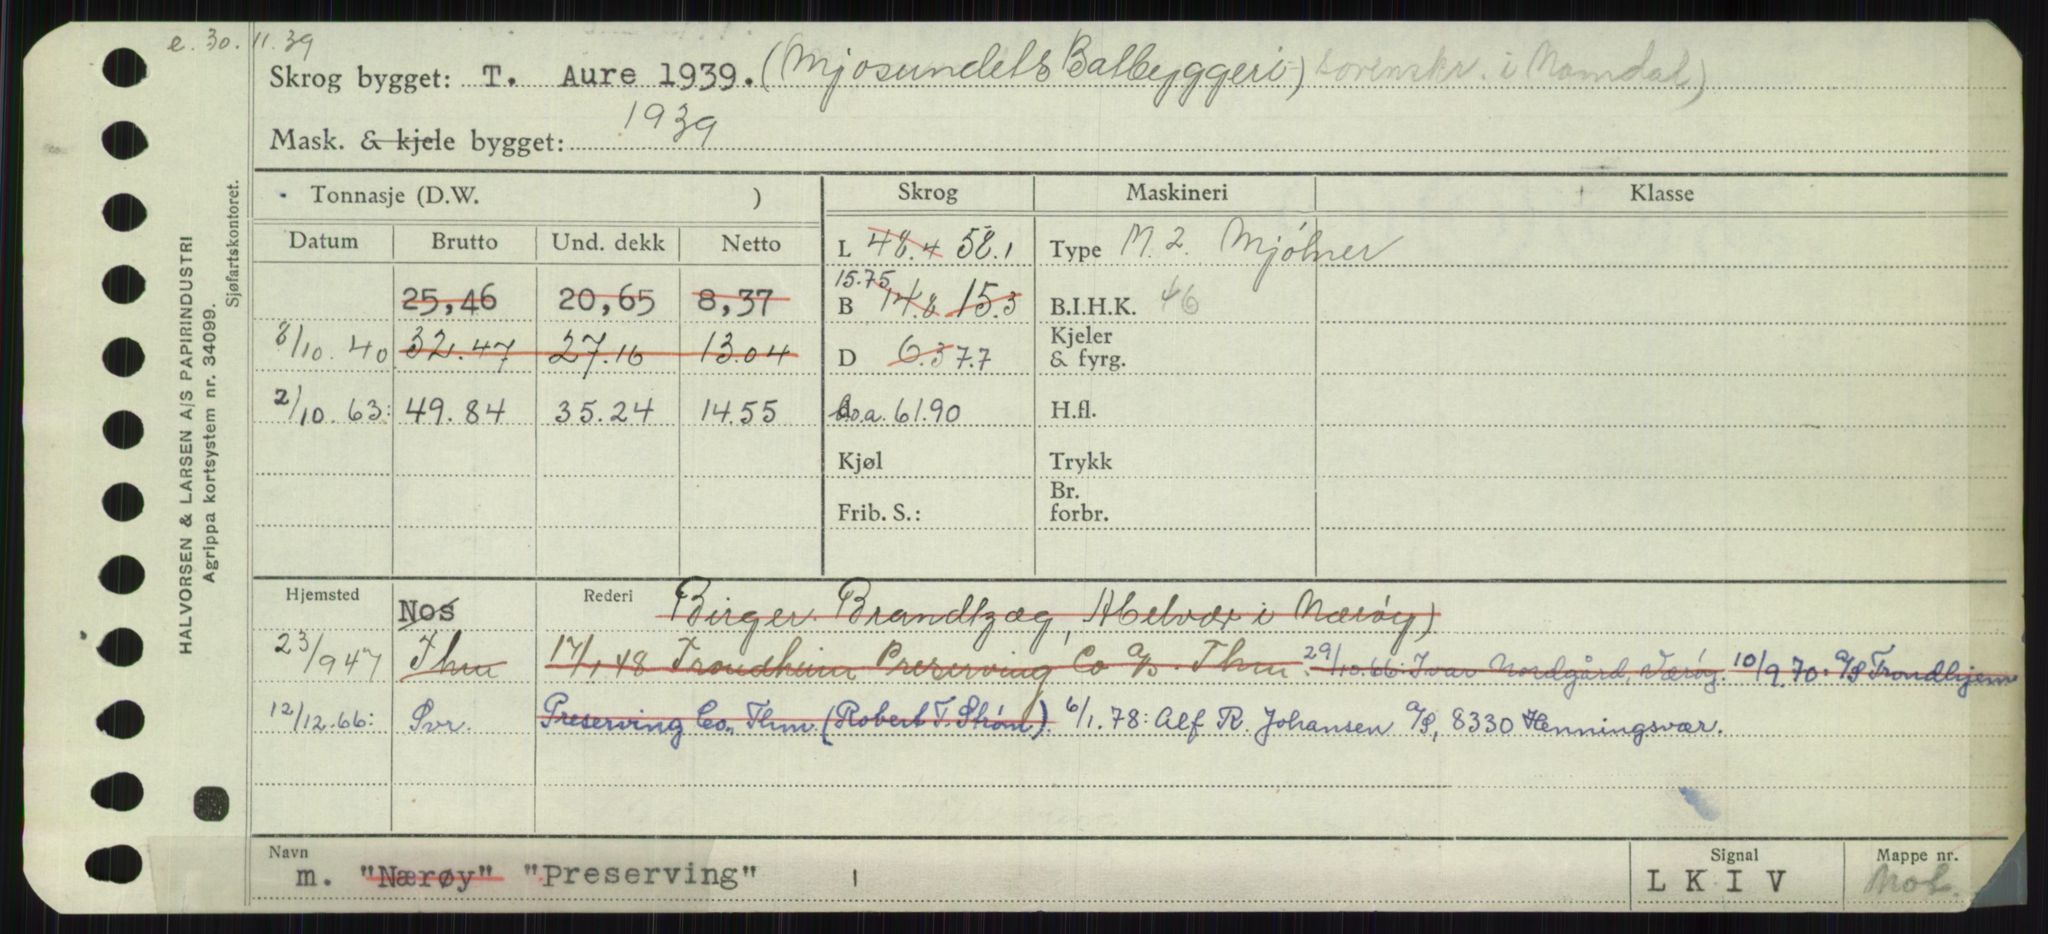 e. 30.11.39
Skrog bygget: T. Aure 1939. (Mjosundets Båtbyggeri) i Namdal)
Mask. & kjele bygget: 1939
Tonnasje (D.W. ) Skrog Maskineri Klasse
Datum Brutto Und. dekk Netto L 48.4 58.1 Type M. 2. Mjølner
25,46 20,65 8,37 B 15.75 14.8 15.3 B.I.H.K. 46
8/10.40 32.47 27.16 13.04 D 6.3 7.7 Kjeler & fyrg.
2/10.63: 49.84 35.24 14.55 l.o.a. 61.90 H.fl.
Kjøl Trykk
Frib. S.: Br. forbr.
Hjemsted Nos Rederi Birger Brandtzæg, Abelvær i Nærøy)
23/9 47 Thm 17/1.48 Trondhjem Preserving Co A/S. Thm. 29/10.66: Ivar Nordgård, Værøy. 10/9.70. A/S Trondhjem
12/12.66: Svr. Preserving Co., Thm. (Robert T. Strøm). 6/1.78: Alf R. Johansen A/S, 8330 Henningsvær.
Navn Signal Mappe nr.
m. "Nærøy" "Preserving" L K I V Mob.
HALVORSEN & LARSEN A/S PAPIRINDUSTRI
Agrippa kortsystem nr. 34099.
Sjøfartskontoret.